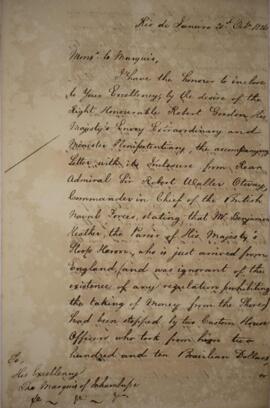 Rio de Janeiro 21st Octr 1826
Monsr le Marquis,
I have the honor to inclose
to Your Excellency, by the desire of the
Right Honourable Robert Gordon, His
Majesty's Envoy Extraordinary and
Minister Plenipotentiary, the accompanying
Letter with its Inclosure from Rear
Admiral Sir Robert Waller Otway,
Commander in Chief of the British
Naval Forces, stating, that Mr. Benjamin
the Purser of His Majesty's
Sloop Heron, who is just arrived from
England, (and was ignorant of the
existence of any regulation prohibiting
the taking of Money from the Shore)
had been stopped by two Custom House
Officers who took from him two
hundred and ten Brazilian Dollars
or
To,
His Excellency
The Marquis of Inhambupe
&c &c &c